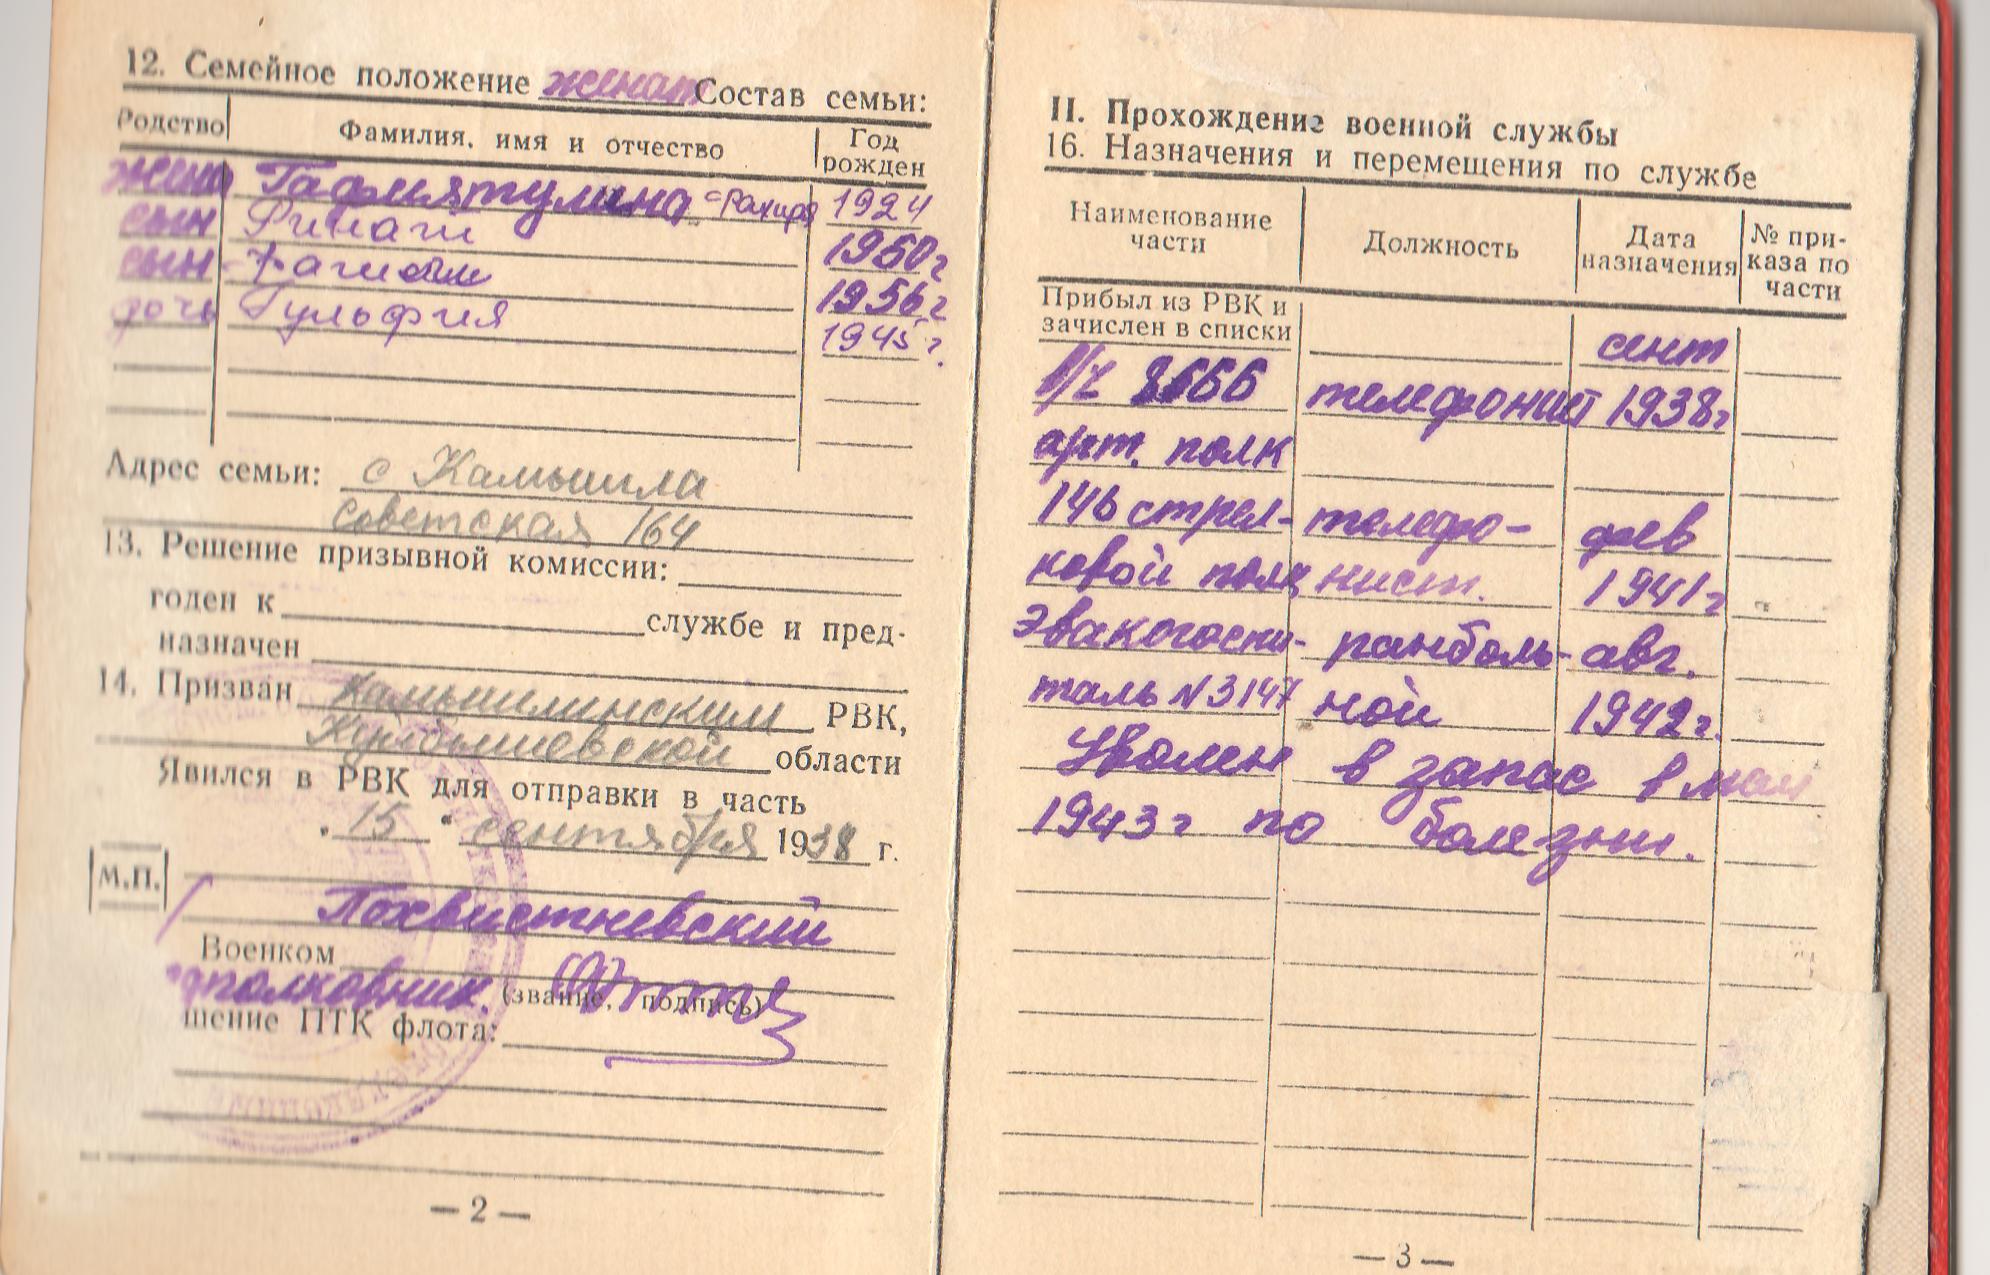 12. Семейное положение женат Состав семьи:
Родство Фамилия, имя и отчество Год рожден
жена Гафиятулина Рахиря 1924
сын Ринат 1950 г
сын 1956 г
дочь Гульфия 1945 г.
Адрес семьи: с Камышла
советская 164
13. Решение призывной комиссии:
годен к службе и пред-
назначен
14. Призван Камышлинским РВК,
Куйбышевской области
Явился в РВК для отправки в часть
„15" сентября 1938 г.
М.П.
Похвистневский
Военком
полковник. (звание, подпись)
шение ПТК флота:
— 2 —
II. Прохождение военной службы
16. Назначения и перемещения по службе
Наименование части Должность Дата назначения № при-каза по части
Прибыл из РВК и
зачислен в списки сент
в/ч телефонист 1938 г
арт. полк
146 стрел- телефо- фев
ковой полк нист. 1941 г
эвакогоспи- ранболь- авг.
таль N 3147 ной 1942 г.
Уволен в запас в мае
1943 г по болезни.
— 3 —